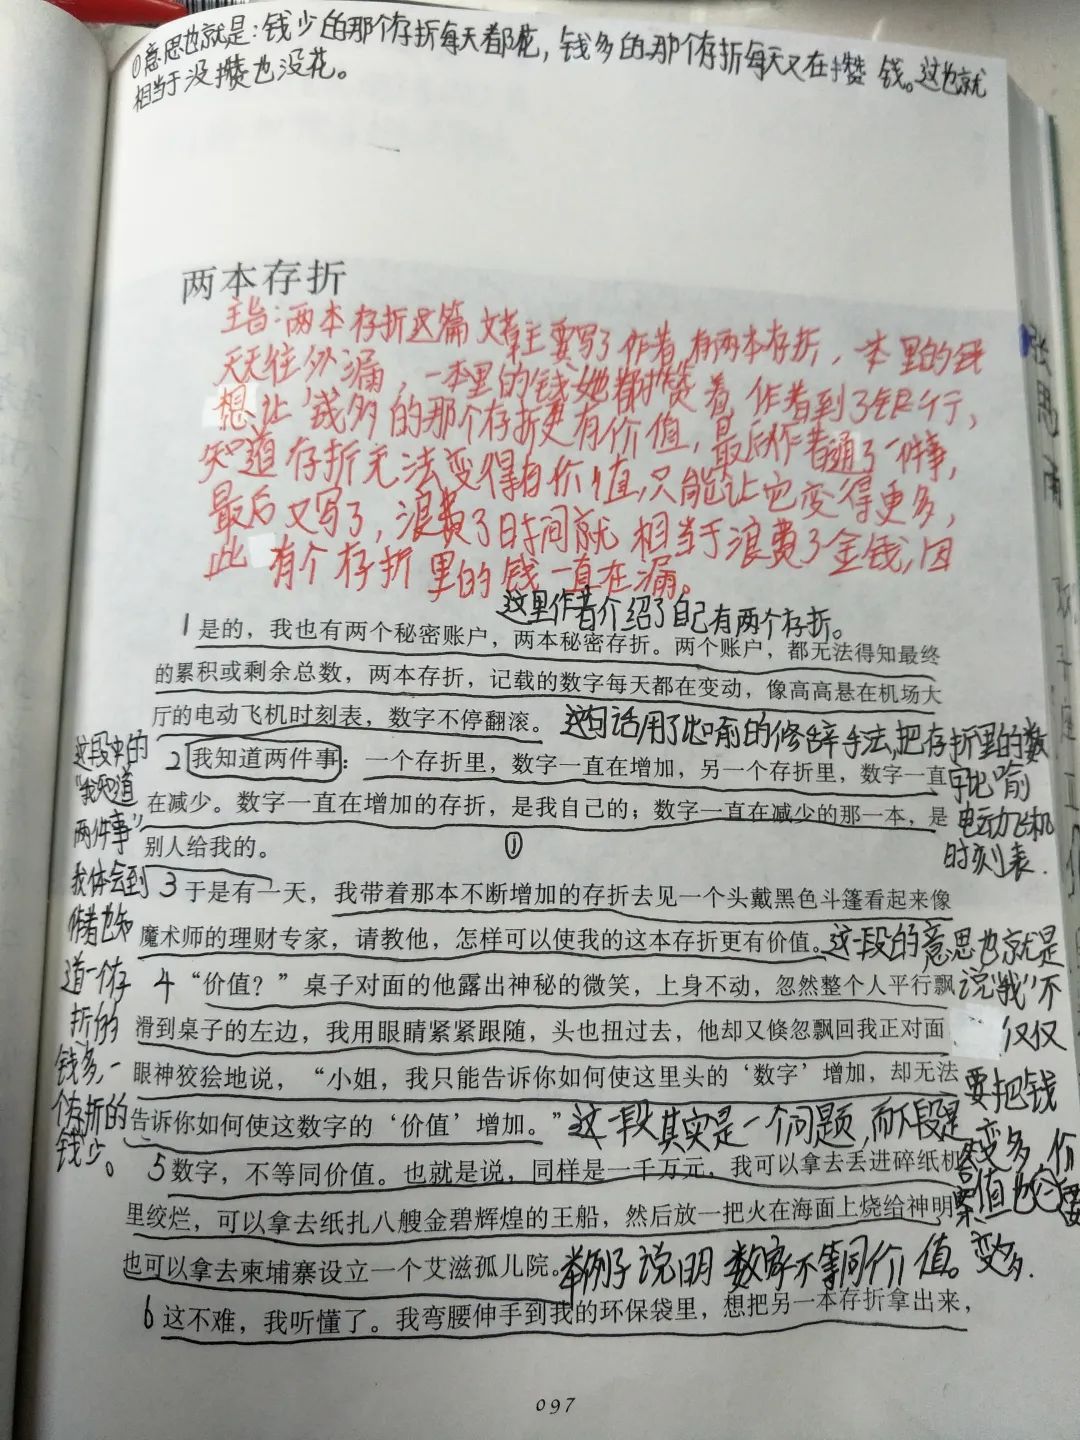 ①意思也就是:钱少的那个存折每天都花,钱多的那个存折每天又在攒钱。这也就
相当于没攒也没花。
两本存折
主旨:两本存折这篇文章主要写了作者有两本存折,一本里的钱
天天往外漏,一本里的钱她都攒着,作者到了银行,
想让钱多的那个存折更有价值,最后作者通了一件事,
知道存折无法变得有价值,只能让它变得更多,
最后又写了,浪费了时间就相当于浪费了金钱,因
此有个存折里的钱一直在漏。
这里作者介绍了自己有两个存折。
1是的,我也有两个秘密账户,两本秘密存折。两个账户,都无法得知最终
的累积或剩余总数,两本存折,记载的数字每天都在变动,像高高悬在机场大
厅的电动飞机时刻表,数字不停翻滚。
这句话用了比喻的修辞手法,把存折里的数
字比喻
电动飞机
时刻表.
2我知道两件事:一个存折里,数字一直在增加,另一个存折里,数字一直
在减少。数字一直在增加的存折,是我自己的;数字一直在减少的那一本,是
别人给我的。
①
这段中的
“我知道
两件事”
我体会到
作者也知
道一个存
折的
钱多,一
个存折的
钱少。
3于是有一天,我带着那本不断增加的存折去见一个头戴黑色斗篷看起来像
魔术师的理财专家,请教他,怎样可以使我的这本存折更有价值。
这一段的意思也就是
说“我”不
仅仅
要把钱
变多,价
值也会要
变多.
4“价值?”桌子对面的他露出神秘的微笑,上身不动,忽然整个人平行飘
滑到桌子的左边,我用眼睛紧紧跟随,头也扭过去,他却又倏忽飘回我正对面
眼神狡狯地说,“小姐,我只能告诉你如何使这里头的‘数字’增加,却无法
告诉你如何使这数字的‘价值’增加。”
这一段其实是一个问题,而下段是
答案
5数字,不等同价值。也就是说,同样是一千万元,我可以拿去丢进碎纸机
里绞烂,可以拿去纸扎八艘金碧辉煌的王船,然后放一把火在海面上烧给神明
也可以拿去柬埔寨设立一个艾滋孤儿院。
举例子说明数字不等同价值。
6这不难,我听懂了。我弯腰伸手到我的环保袋里,想把另一本存折拿出来,
097
张思雨